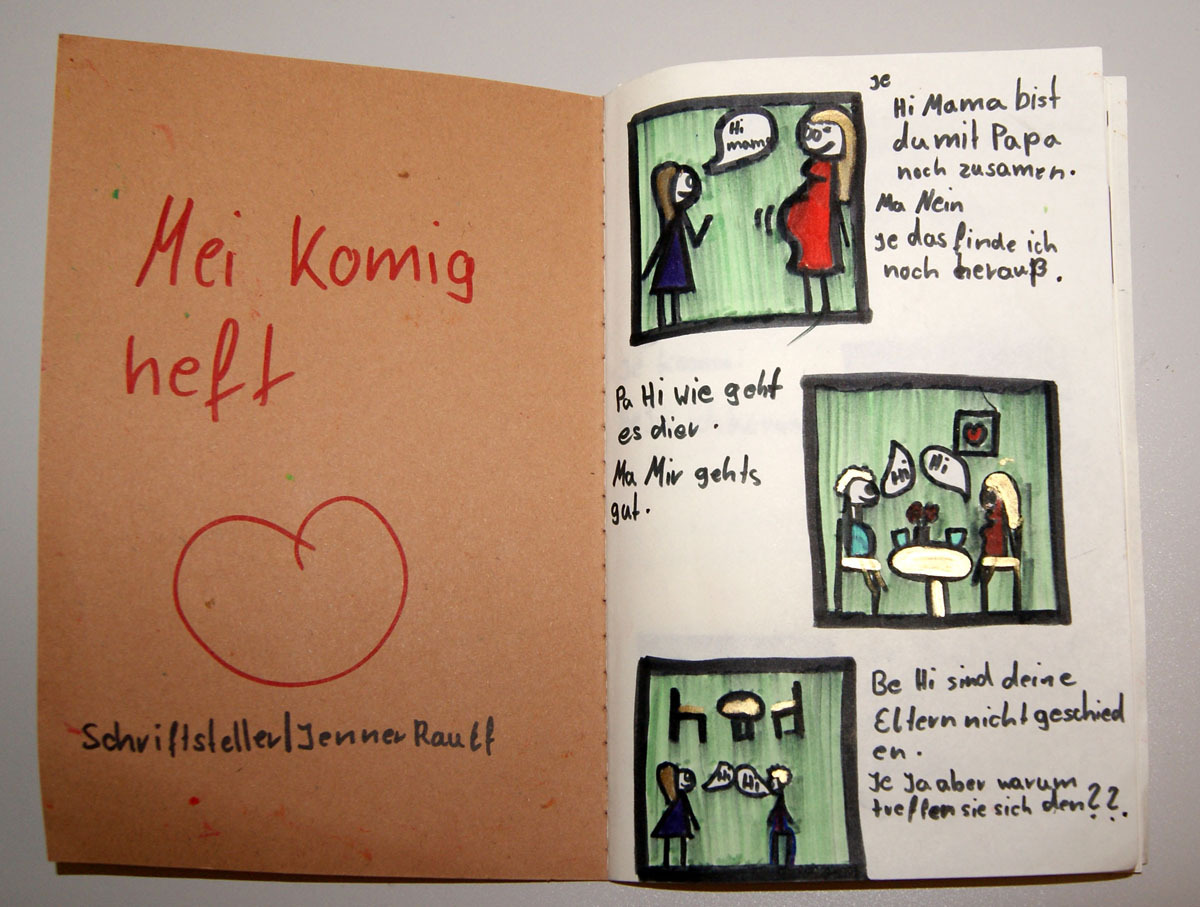 Mei Komig
heft
Schriftsteller/Jenner Raulf
Hi
mama
Je
Hi Mama bist
du mit Papa
noch zusamen.
Ma Nein
Je das finde ich
noch herauß.
Pa Hi wie geht
es dier.
Ma Mir gehts
gut.
Hi
Hi
Be Hi sind deine
Eltern nicht geschied
en.
Je Ja aber warum
treffen sie sich den??.
Hi
Hi